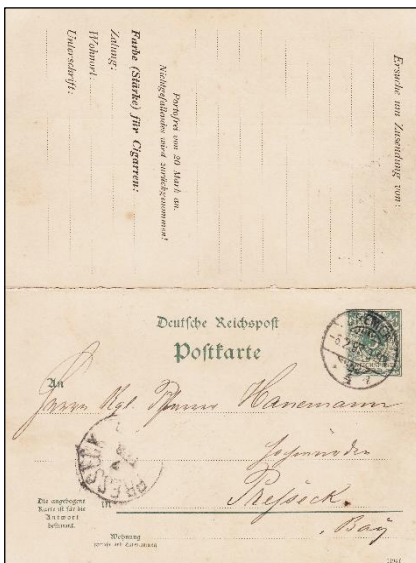 Ersuche um Zusendung von:
Portofrei von 20 Mark an.
Nichtgefallendes wird zurückgenommen!
Farbe (Stärke) für Cigarren:
Zalung:
Wohnort:
Unterschrift:
Deutsche Reichspost
Postkarte
An
Herrn Kgl. Pfarrer Hanemann
Preßeck
in
Bay
PRESSECK
Die angebogene
Karte ist für die
Antwort
bestimmt.
Wohnung